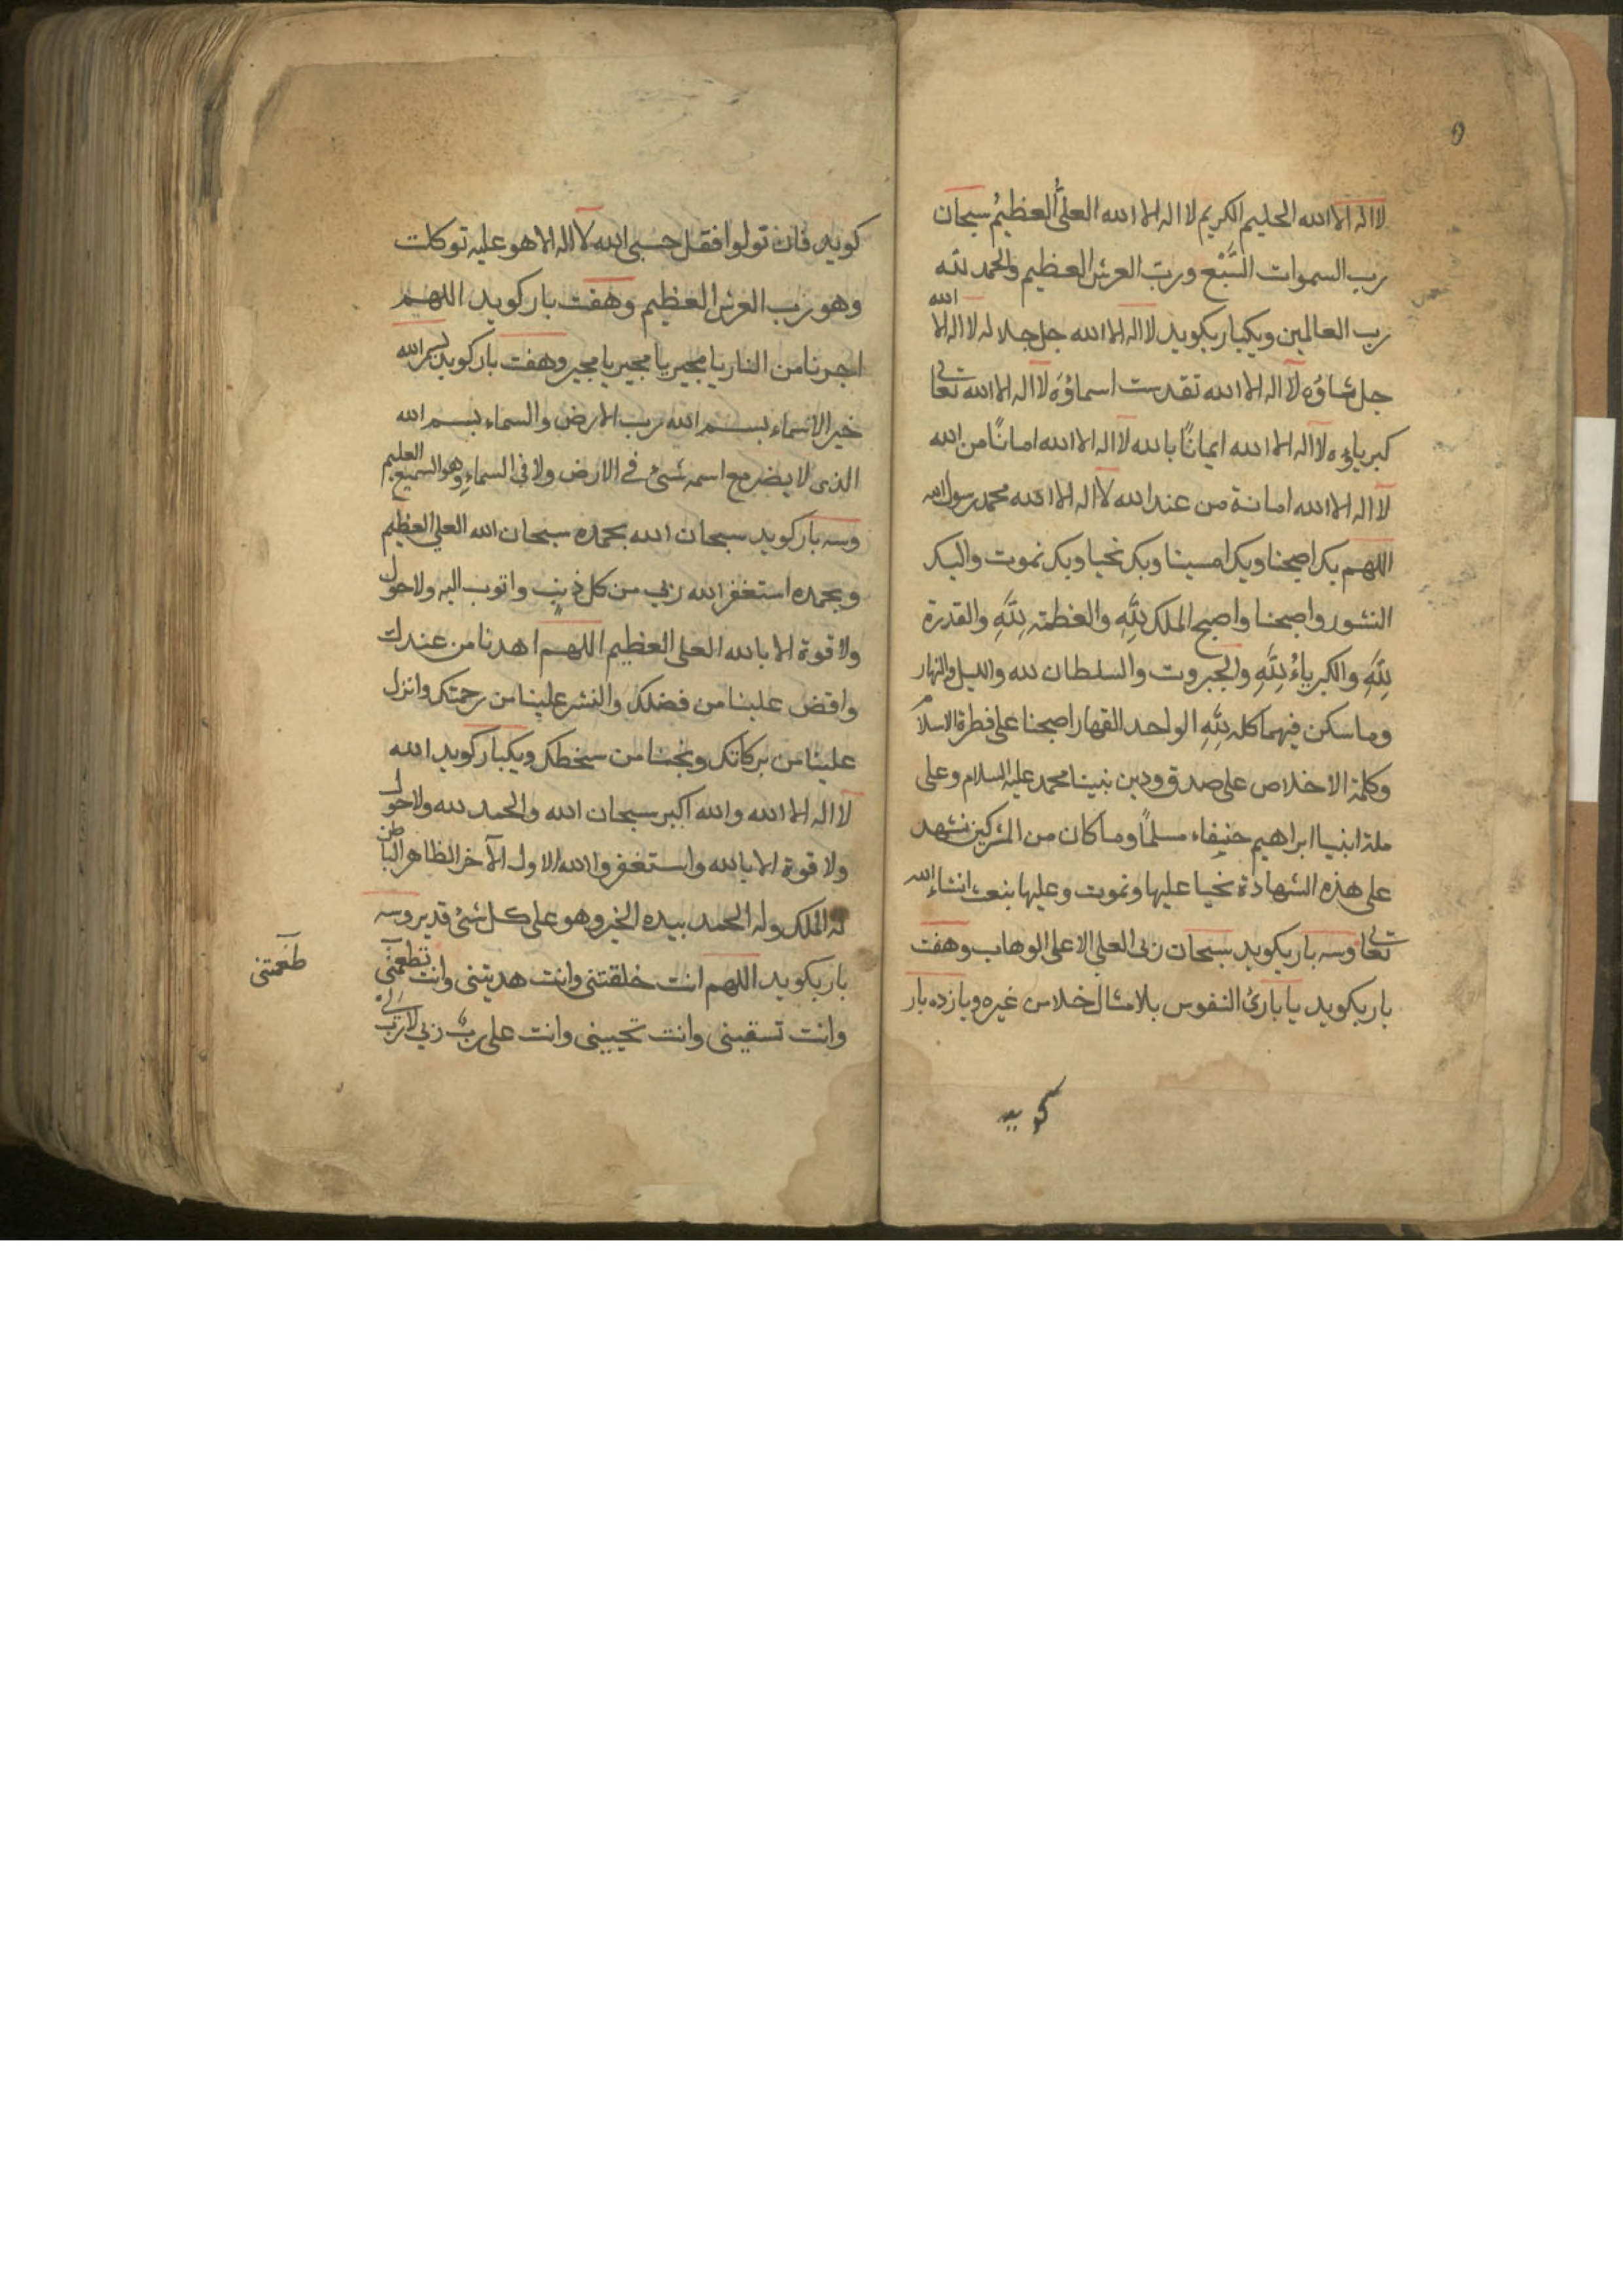 لا اله الا الله الحليم الكريم لا اله الا الله العلىُّ العظيمُ سبحان
رب السموات السَّبْع ورب العرش العظيم والحمد لله
رب العالمين ويكبار بكويد لا اله الا الله جل جلاله لا اله الا الله
جل ثناؤه لا اله الا الله تقدست اسماؤه لا اله الا الله تعالى
كبرياؤه لا اله الا الله ايمانًا بالله لا اله الا الله امانًا من الله
لا اله الا الله امانة من عند الله لا اله الا الله محمد رسول الله
اللهم بك اصبحنا وبك امسينا وبك نحيا وبك نموت واليك
النشور واصبحنا واصبح الملك لِلَّهِ والعظمة لِلَّهِ والقدرة
لِلَّهِ والكبرياءُ لِلَّهِ والجبروت والسلطان لله والليل والنهار
وما سكن فيهما كله لِلَّهِ الواحد القهار اصبحنا على فطرة الاسلام
وكلمة الاخلاص على صدق ودين نبينا محمد عليه السلام وعلى
ملة ابنيا ابراهيم حنيفاء مسلماً وما كان من المشركين نشهد
على هذه الشهادة نحيا عليها ونموت وعليها نبعث انشاء الله
تعالى وسه بار بكويد سبحان ربى العلى الاعلى الوهاب وهفت
بار بكويد يا بارئ النفوس بلا مثال خلا من غيره ويازده بار
كويد
كويد فان تولوا فقل حسبى الله لا اله الا هو عليه توكلت
وهو رب العرش العظيم وهفت بار كويد اللهم
اجرنا من النار يا مجير يا مجير يا مجير وهفت بار كويد بسم الله
خير الاسماء بسم الله رب الارض والسماء بسم الله
الذى لا يضر مع اسمه شئ فى الارض ولا فى السماءِ وهو السميع العليم
وسه بار كويد سبحان الله بحمده سبحان الله العلى العظيم
وبحمده استغفر الله ربي من كل ذنبٍ واتوب اليه ولا حول
ولا قوة الا بالله العلى العظيم اللهم اهدنا من عندك
واقض علينا من فضلك والنشر علينا من رحمتك وانزل
علينا من بركاتك ونجنا من سخطك ويكبار كويد الله
لا اله الا الله والله اكبر سبحان الله والحمد لله ولا حول
ولا قوة الا بالله واستغفروا الله الاول الآخر الظاهر الباطن
له الملك وله الحمد بيده الخير وهو على كل شئ قدير وسه
بار بكويد اللهم انت خلقتنى وانت هديتنى وانت تطعمنى
طعمتنى
وانت تسقينى وانت تحيينى وانت على رب ربي لا رب لى